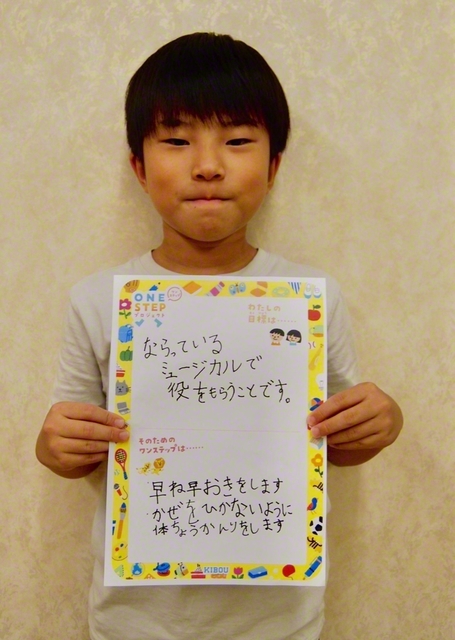 ONE
STEP
プロジェクト
わたしの
目標は……
ならっている
ミュージカルで
役をもらうことです。
そのための
ワンステップは……
早ね早おきをします
かぜをひかないように
体ちょうかんりをします
KIBOU